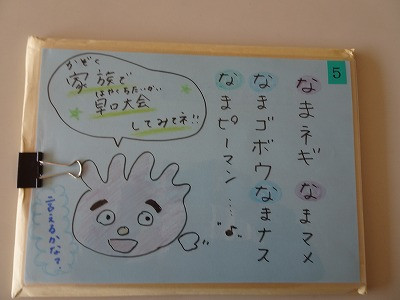 5
なまネギ なまマメ
なまゴボウ なまナス
なまピーマン……
かぞく
家族で
はやくちたいかい
早口大会
してみてネ!!
言えるかな?